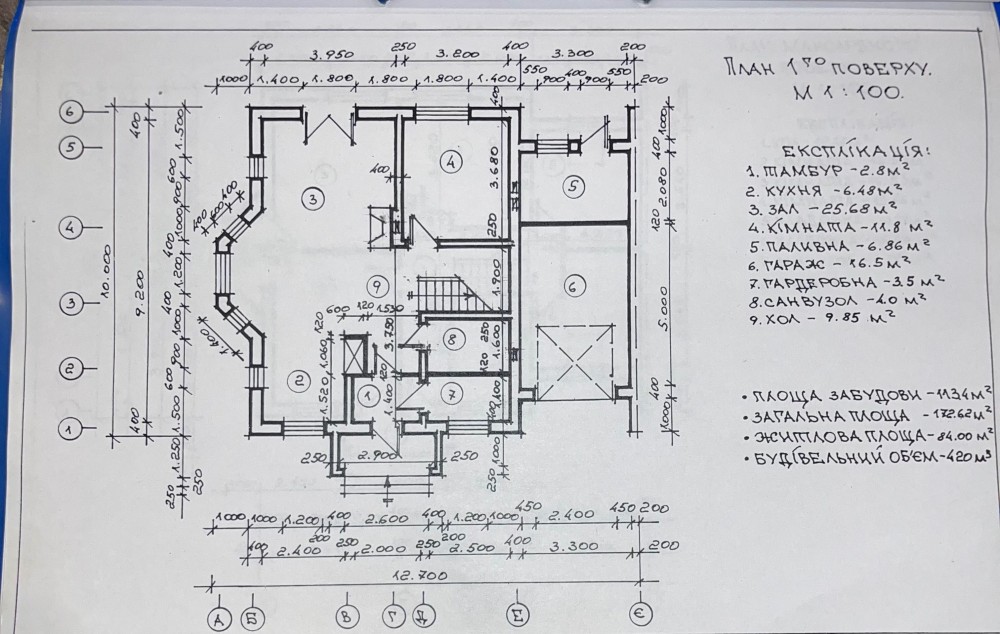 ПЛАН 1ГО ПОВЕРХУ.
М 1:100.
ЕКСПЛІКАЦІЯ:
1. ТАМБУР - 2.8 м²
2. КУХНЯ - 6.48 м²
3. ЗАЛ - 25.68 м²
4. КІМНАТА - 11.8 м²
5. ПАЛИВНА - 6.86 м²
6. ГАРАЖ - 16.5 м²
7. ГАРДЕРОБНА - 3.5 м²
8. САНВУЗОЛ - 4.0 м²
9. ХОЛ - 9.85 м²
• ПЛОЩА ЗАБУДОВИ - 113.4 м²
• ЗАГАЛЬНА ПЛОЩА - 172.62 м²
• ЖИТЛОВА ПЛОЩА - 84.00 м²
• БУДІВЕЛЬНИЙ ОБ'ЄМ - 420 м³
400 3.950 250 3.200 400 3.300 200
1000 1.400 1.800 1.800 1.800 1.400 550 900 400 900 550 200
6 400 1.500 400 400 1000
5 600 400 3.680 400
4 5 2.080
3
900 700 600 400
4 1000 400 250 120
10.000 9.200 1.200 9 1.900 6
3 400 600 120 1.530 5.000
1000 1.400 120 3.750 8 250 1.600
2 900 1.060 120 120
600 2 1.520 1 1.400 7 1.100 400
1 400 1.500 1000
1.250 250 2.900 250 1000
250 250 250
1000 1000 1.200 400 2.600 400 1.200 1000 450 2.400 450 200
200 200
400 2.400 250 2.000 250 2.500 400 3.300 200
12.700
А Б В Г Д Е Є